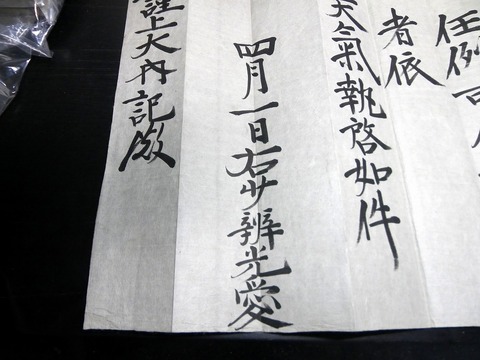 任例可
者依
天氣執啓如件
四月一日右少辨光愛
謹上大内記殿